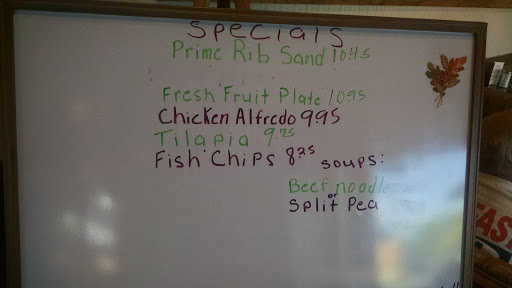 Specials
Prime Rib Sand 10.45
Fresh Fruit Plate 10.95
Chicken Alfredo 9.95
Tilapia 9.25
Fish Chips 8.25
soups:
Beef noodle
or
Split Pea